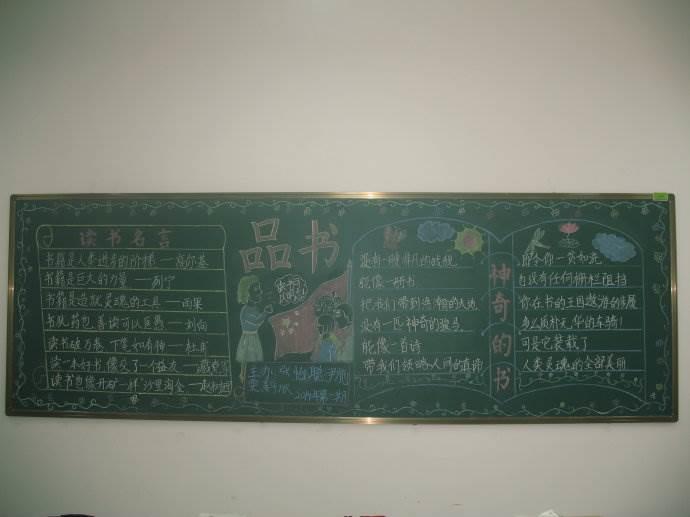 读书名言
书籍是人类进步的阶梯——高尔基
书籍是巨大的力量——列宁
书籍是造就灵魂的工具——雨果
书犹药也，善读可以医愚——刘向
读书破万卷 下笔如有神——杜甫
读一本好书 像交了一个益友——臧克家
读书也像开矿一样“沙里淘金”——赵树理
品书
主办
2014年第一期
神奇的书
没有一艘非凡的战舰
能像一册书
把我们带到浩瀚的天地
没有一匹神奇的骏马
能像一首诗
带我们领略人间的真谛
即令你一贫如洗
也没有任何栅栏阻挡
你在书的王国遨游的步履
多么质朴无华的车骑！
可是它装载了
人类灵魂的全部美丽